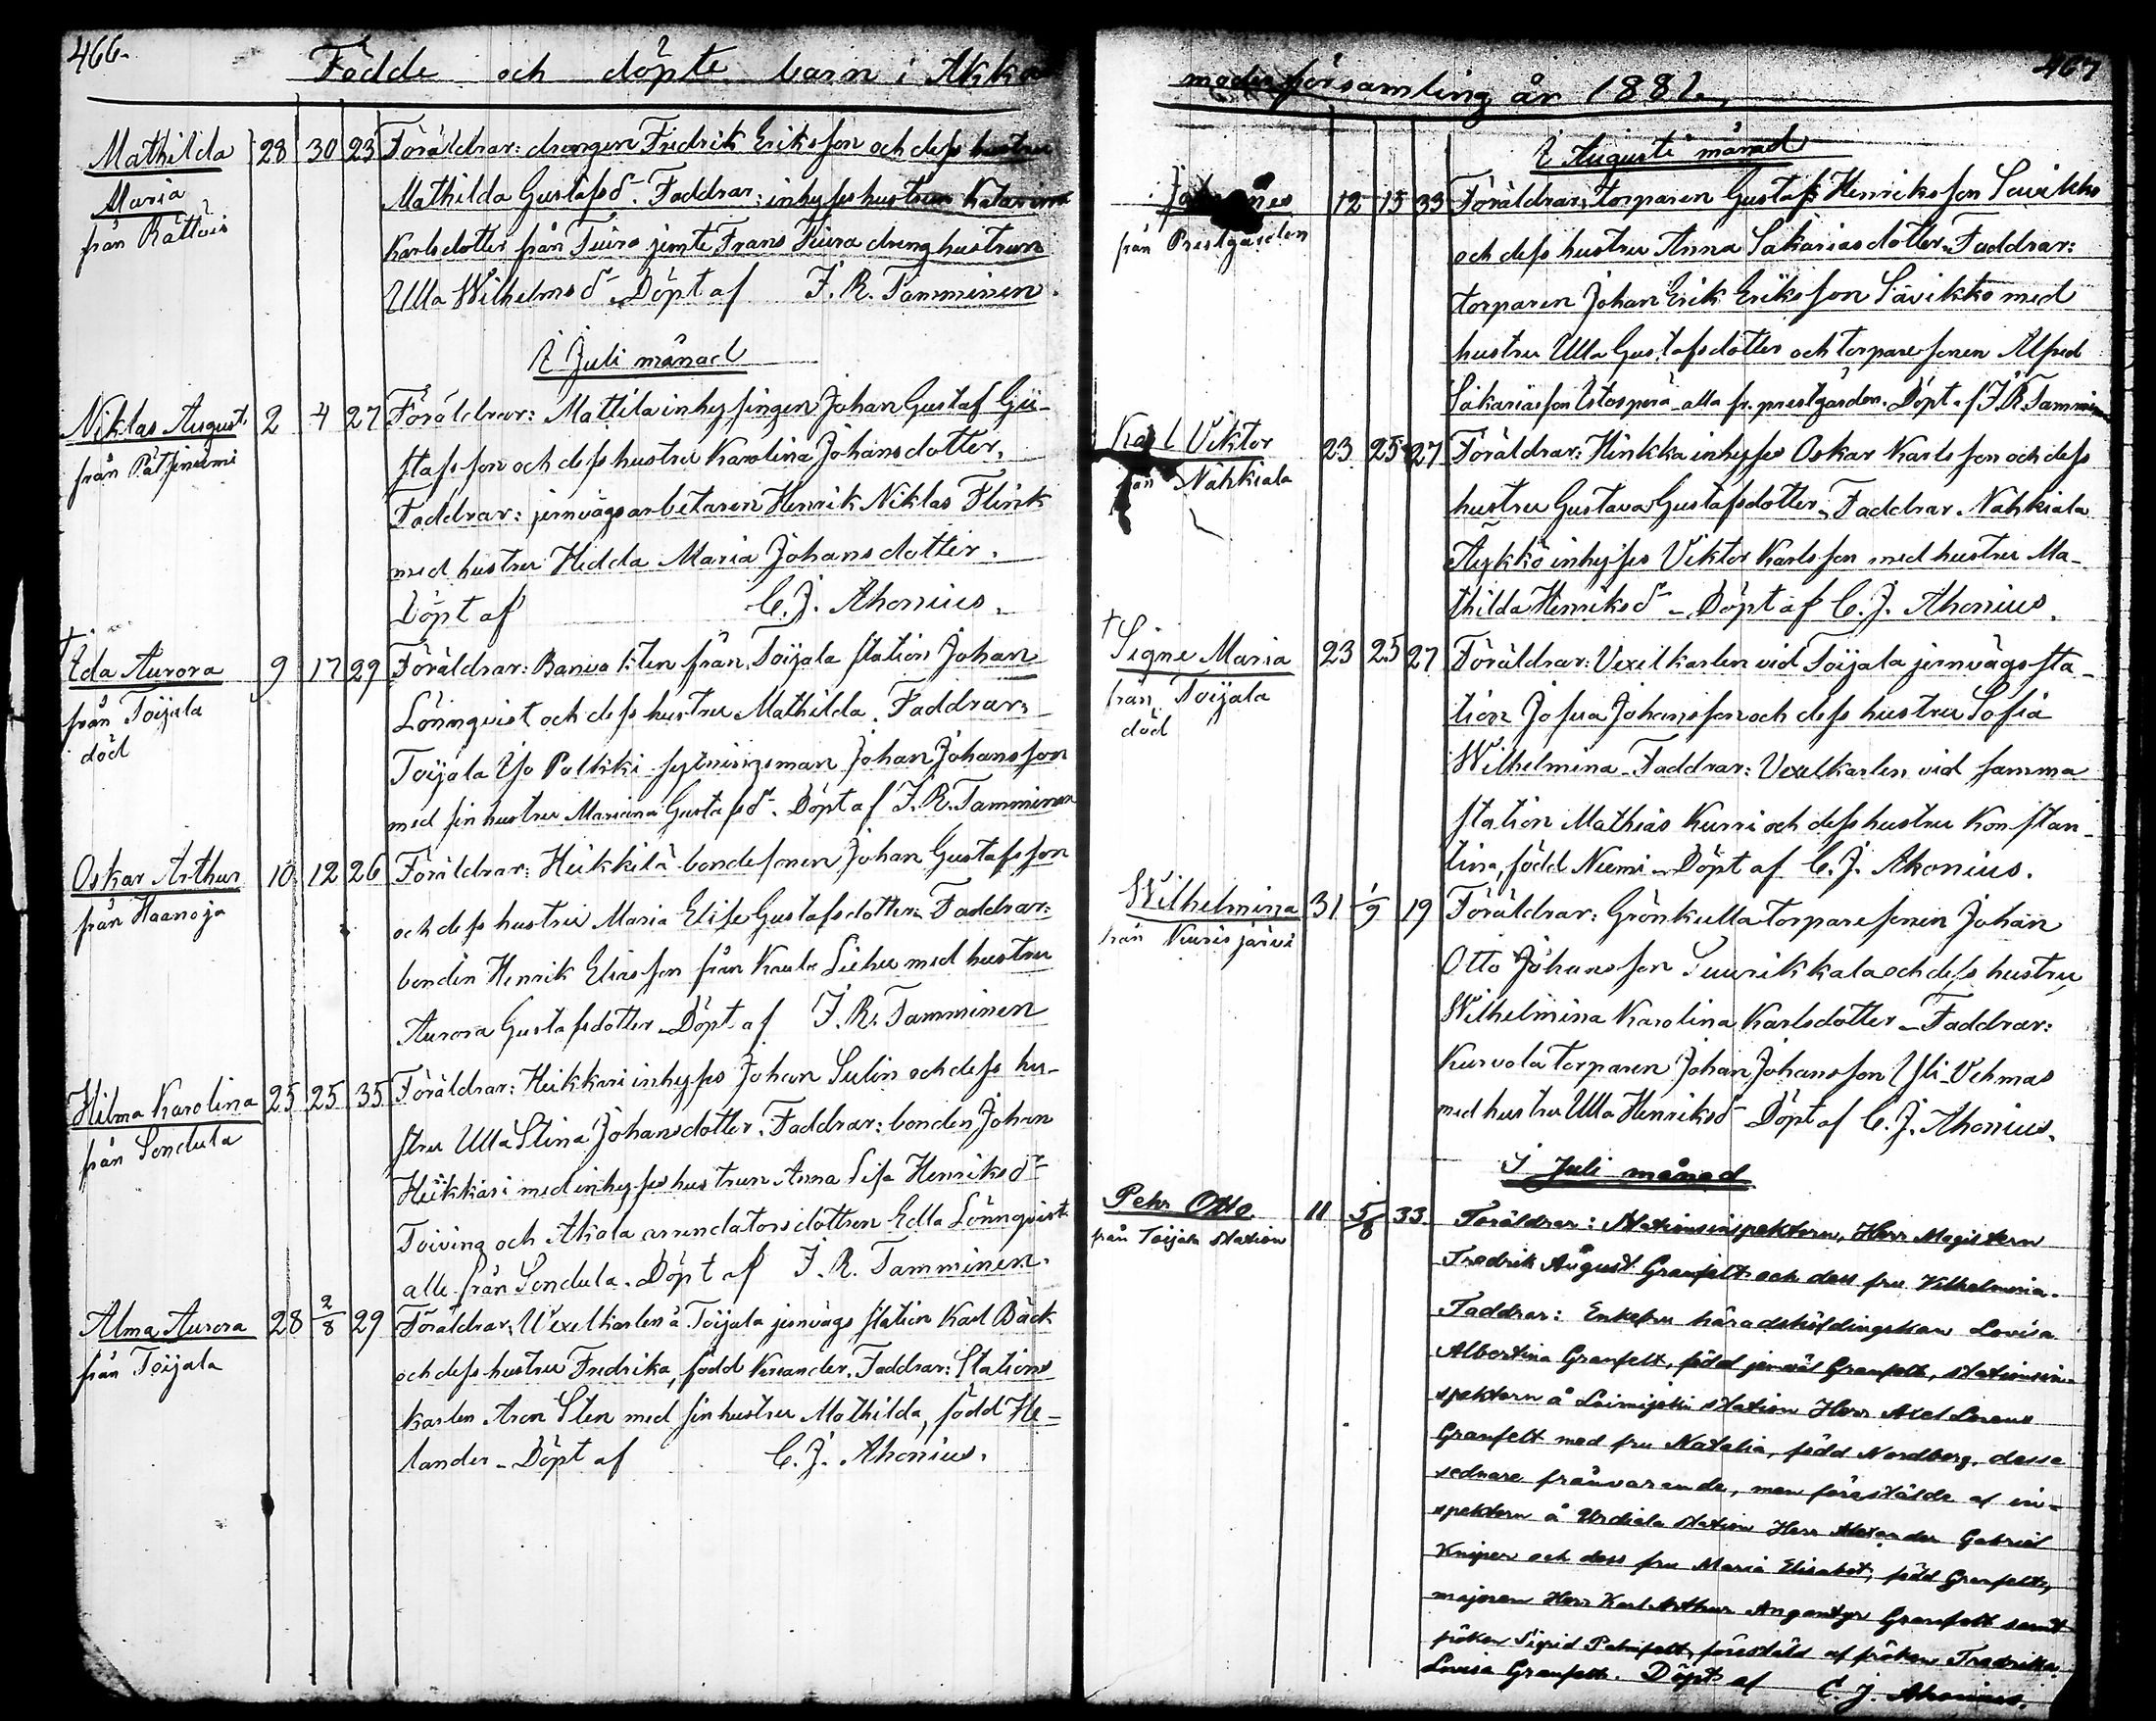 466.
Födde och döpte barn i Akka
Mathilda 28 30 23 Föräldrar: drengen Fredrik Eriksson och dess hustru
Maria Mathilda Gustafsdr. Faddrar: inhyseshustrun Katarina
från Rättöis Karlsdotter från Tiura jemte Frans Tiura drenghustrun
Ulla Wilhelmsdr. Döpt af F. R. Tamminen.
I Juli månad
Niklas August 2 4 27 Föräldrar: Mattila inhysingen Johan Gustaf Gu-
från Pätsiniemi stafsson och dess hustru Karolina Johansdotter.
Faddrar: jernvägsarbetaren Henrik Niklas Flink
med hustru Hedda Maria Johansdotter.
Döpt af C. J. Ahonius.
† Ida Aurora 9 17 29 Föräldrar: Banvakten från Toijala station Johan
från Toijala Lönnqvist och dess hustru Mathilda. Faddrar:
död Toijala Yso Polkki sytningsman Johan Johansson
med sin hustru Mariana Gustafsdr. Döpt af F. R. Tamminen
Oskar Arthur 10 12 26 Föräldrar: Heikkilä bondesonen Johan Gustafsson
från Haanoja och dess hustru Maria Elise Gustafsdotter. Faddrar:
bonden Henrik Eliasson från Kaula Liehu med hustru
Aurora Gustafsdotter. Döpt af F. R. Tamminen
Hilma Karolina 25 25 35 Föräldrar: Heikkari inhyses Johan Sulin och dess hu-
från Sondula stru Ulla Stina Johansdotter. Faddrar: bonden Johan
Heikkari med inhyses hustrun Anna Lisa Henriksdr
Toiving och Ahola arrendatorsdottren Edla Lönnqvist
alle från Sondula. Döpt af F. R. Tamminen.
Alma Aurora 28 2/8 29 Föräldrar: Wexelkarlen å Toijala jernvägs station Karl Bäck
från Toijala och dess hustru Fredrika, född Kexander. Faddrar: Stations
karlen Aron Sten med sin hustru Mathilda, född He-
lander. Döpt af C. J. Ahonius.
467
moderförsamling år 1882,
I Augusti månad
Johannes 12 13 33 Föräldrar: torparen Gustaf Henriksson Savikko
från Prestgården och dess hustru Anna Sakariasdotter. Faddrar:
torparen Johan Erik Eriksson Savikko med
hustru Ulla Gustafsdotter och torparesonen Alfred
Sakariasson Estosperä alla fr. prestgården. Döpt af F. R. Tamminen
Karl Viktor 23 25 27 Föräldrar: Hinkka inhyses Oskar Karlsson och dess
från Nahkiala hustru Gustava Gustafsdotter. Faddrar. Nahkiala
Äykkö inhyses Viktor Karlsson med hustru Ma-
thilda Henriksdr. Döpt af C. J. Ahonius.
† Signe Maria 23 25 27 Föräldrar: Vexelkarlen vid Toijala jernvägssta-
från Toijala tion Josua Johansson och dess hustru Sofia
död Wilhelmina. Faddrar: Vexelkarlen vid samma
station Mathias Kurri och dess hustru Konstan-
tina, född Niemi. Döpt af C. J. Ahonius.
Wilhelmina 31 1/9 19 Föräldrar: Grönkulla torparesonen Johan
från Kurisjärvi Otto Johansson Suurikkala och dess hustru
Wilhelmina Karolina Karlsdotter. Faddrar:
Kurvola torparen Johan Johansson Yli-Vehmas
med hustru Ulla Henriksdr Döpt af C. J. Ahonius.
I Juli månad
Pehr Otto 11 5/8 33. Föräldrar: Stationsinspektorn, Herr Magistern
från Toijala station Fredrik August Granfelt och dess fru Vilhelmina.
Faddrar: Enkefru häradshöfdingskan Lovisa
Albertina Granfelt, född jemväl Granfelt, stationsin-
spektorn å Loimijoki station Herr Axel Lorens
Granfelt med fru Natalia, född Nordberg, dessa
sednare frånvarande, men förestälde af in-
spektorn å Urdiala station Herr Alexander Gabriel
Kniper och dess fru Maria Elisabet, född Granfelt,
majoren Herr Karl Arthur Angantyr Granfelt samt
fröken Sigrid Palmfelt, förestäld af fröken Fredrika
Lovisa Granfelt. Döpt af C. J. Ahonius.